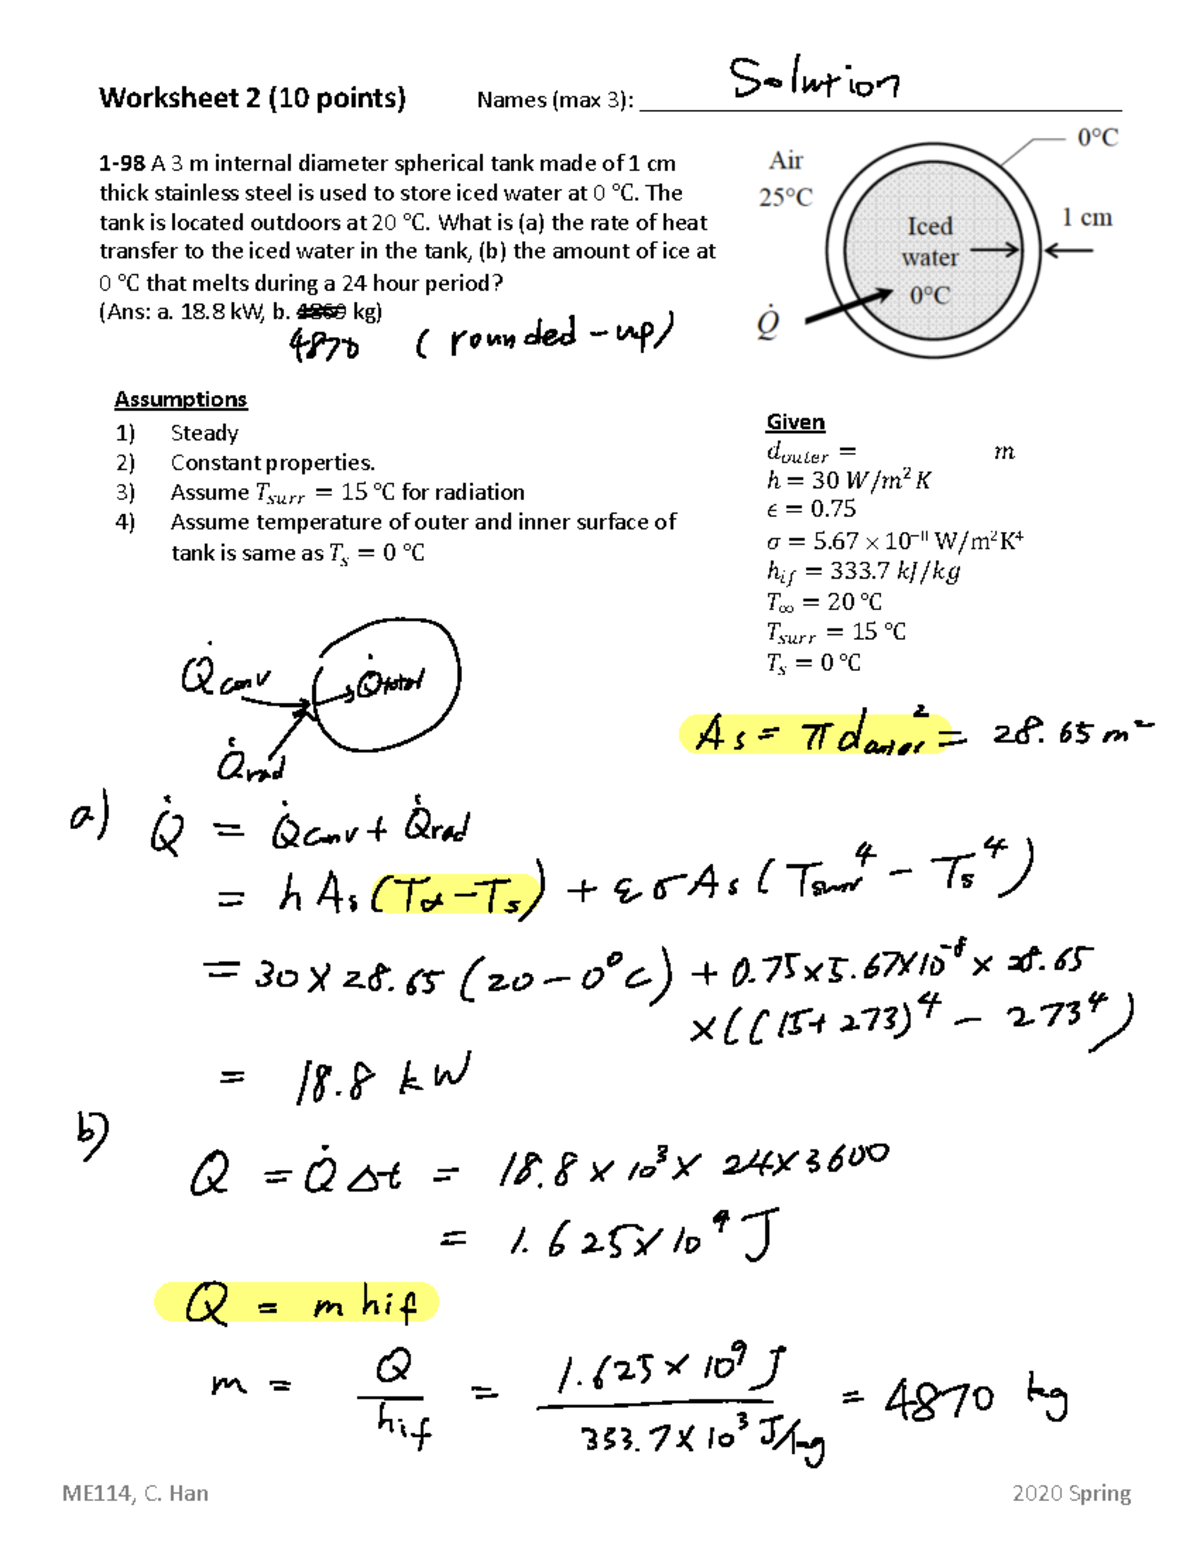 Solution
Worksheet 2 (10 points) Names (max 3):
1-98 A 3 m internal diameter spherical tank made of 1 cm
thick stainless steel is used to store iced water at 0 °C. The
tank is located outdoors at 20 °C. What is (a) the rate of heat
transfer to the iced water in the tank, (b) the amount of ice at
0 °C that melts during a 24 hour period?
(Ans: a. 18.8 kW, b. kg)
4870 (rounded-up)
0°C
Air
25°C
1 cm
Iced
water
0°C
Q̇
Assumptions
1) Steady
2) Constant properties.
3) Assume Tsurr = 15 °C for radiation
4) Assume temperature of outer and inner surface of
tank is same as Ts = 0 °C
Given
douter = m
h = 30 W/m² K
ϵ = 0.75
σ = 5.67 × 10⁻⁸ W/m²K⁴
hif = 333.7 kJ/kg
T∞ = 20 °C
Tsurr = 15 °C
Ts = 0 °C
Q̇conv
Q̇total
Q̇rad
As = π douter² = 28.65 m²
a) Q̇ = Q̇conv + Q̇rad
= h As (T∞ - Ts) + εσ As (Tsurr⁴ - Ts⁴)
= 30 × 28.65 (20 - 0°C) + 0.75 × 5.67 × 10⁻⁸ × 28.65
× ((15 + 273)⁴ - 273⁴)
= 18.8 kW
b)
Q = Q̇ Δt = 18.8 × 10³ × 24 × 3600
= 1.625 × 10⁹ J
Q = m hif
m = Q / hif = 1.625 × 10⁹ J / 333.7 × 10³ J/kg = 4870 kg
ME114, C. Han 2020 Spring